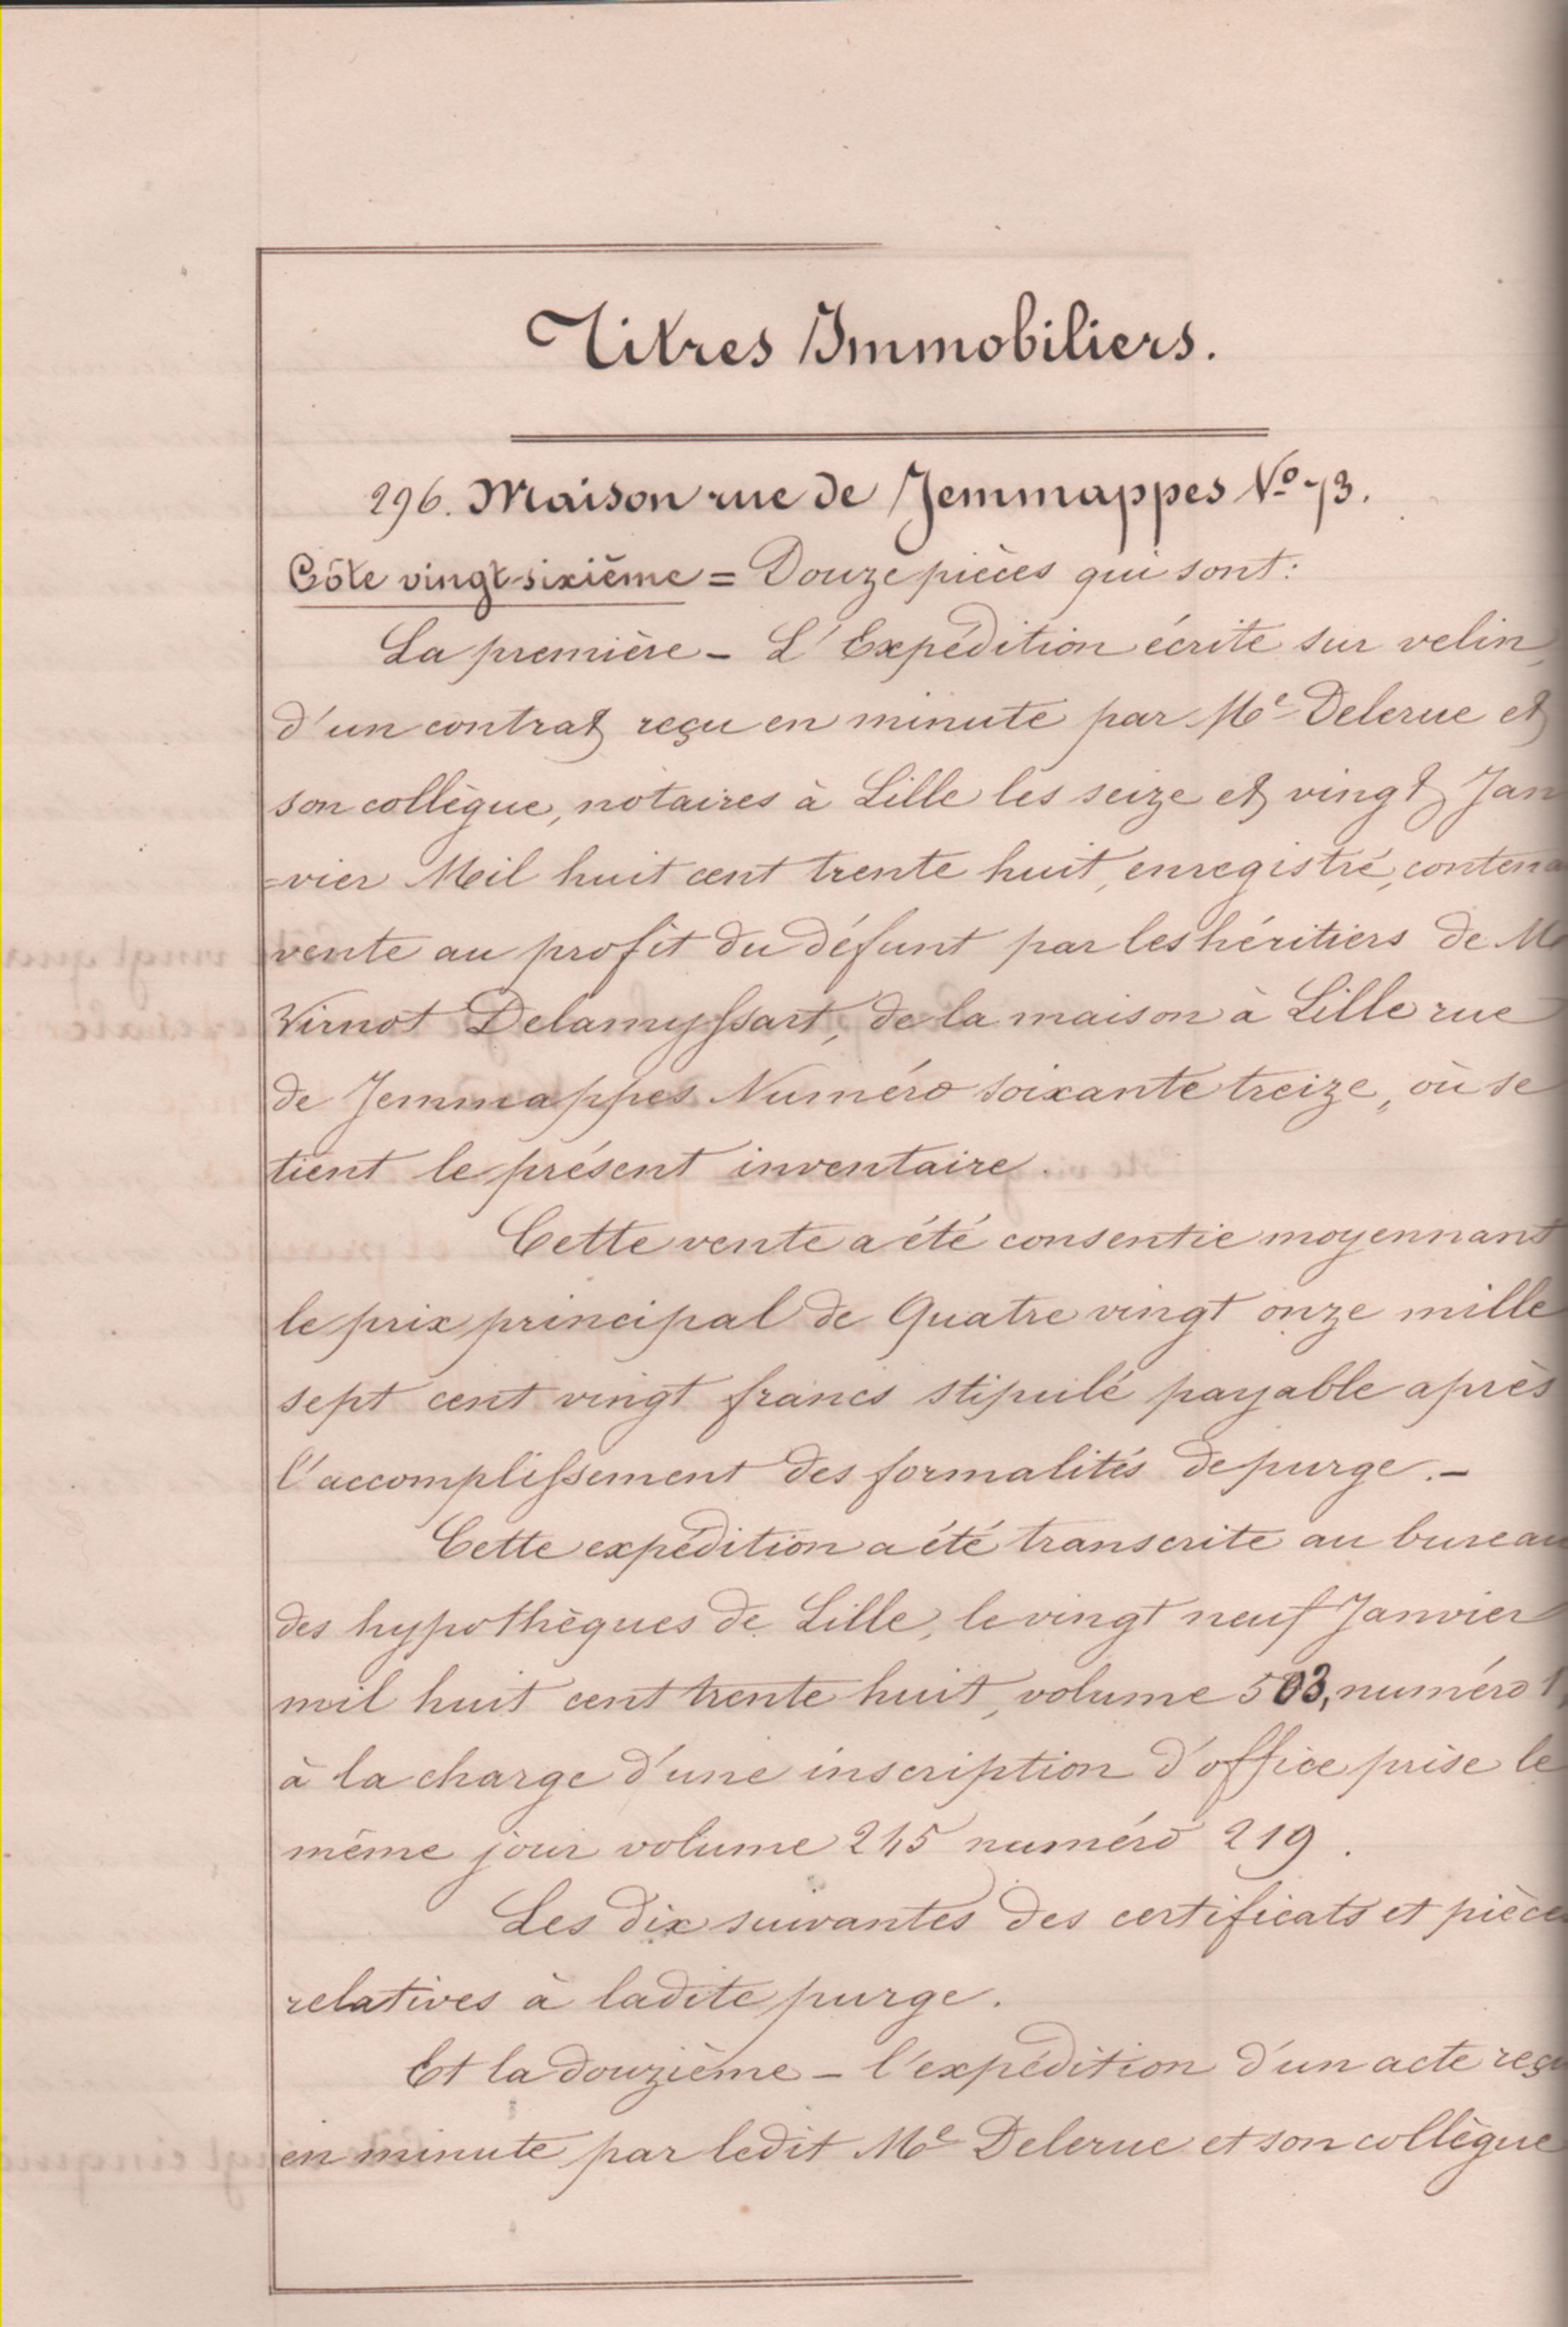 Titres Immobiliers.
296. Maison rue de Jemmappes N.º 73.
Côte vingt-sixième = Douze pièces qui sont:
La première - L'Expédition écrite sur velin,
d'un contrat reçu en minute par Me Delerue et
son collègue, notaires à Lille les seize et vingt Jan
=vier Mil huit cent trente huit, enregistré, contena
vente au profit du défunt par les héritiers de M
Virnot Delamyssart, de la maison à Lille rue
de Jemmappes Numéro soixante treize, où se
tient le présent inventaire.
Cette vente a été consentie moyennant
le prix principal de Quatre vingt onze mille
sept cent vingt francs stipulé payable après
l'accomplissement des formalités de purge. -
Cette expédition a été transcrite au bureau
des hypothèques de Lille, le vingt neuf Janvier
mil huit cent trente huit, volume 503, numéro 1
à la charge d'une inscription d'office prise le
même jour volume 245 numéro 219.
Les dix suivantes des certificats et pièce
relatives à ladite purge.
Et la douzième - l'expédition d'un acte reçu
en minute par ledit Me Delerue et son collègue